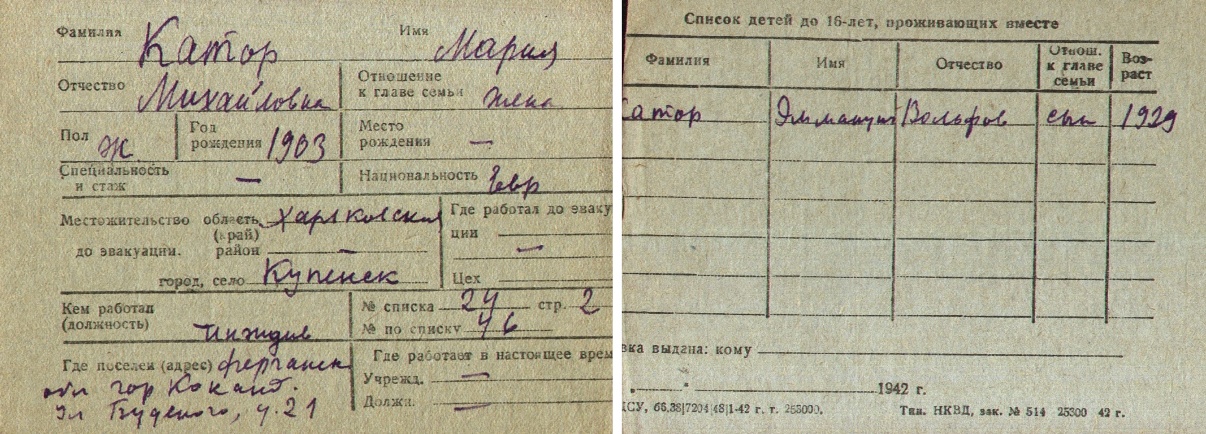 Фамилия Катор Имя Мария
Отчество Михайловна Отношение к главе семьи жена
Пол Ж Год рождения 1903 Место рождения —
Специальность и стаж — Национальность Евр
Местожительство область (край) Харьковская Где работал до эваку
до эвакуации. район — ции —
город, село Купенск Цех
Кем работал (должность) № списка 24 стр. 2
иждив № по списку 46
Где поселен (адрес) Ферганск Где работает в настоящее врем
обл гор Коканд. Учрежд. —
Ул Буденого, д. 21 Должн. —
Список детей до 16-лет, проживающих вместе
Фамилия Имя Отчество Отнош. к главе семьи Воз-
раст
Катор Вольфов сын 1929
вка выдана: кому
1942 г.
ЦСУ, 66,38|7204|48|1-42 г. т. 253000. Тип. НКВД, зак. № 514 25300 42 г.